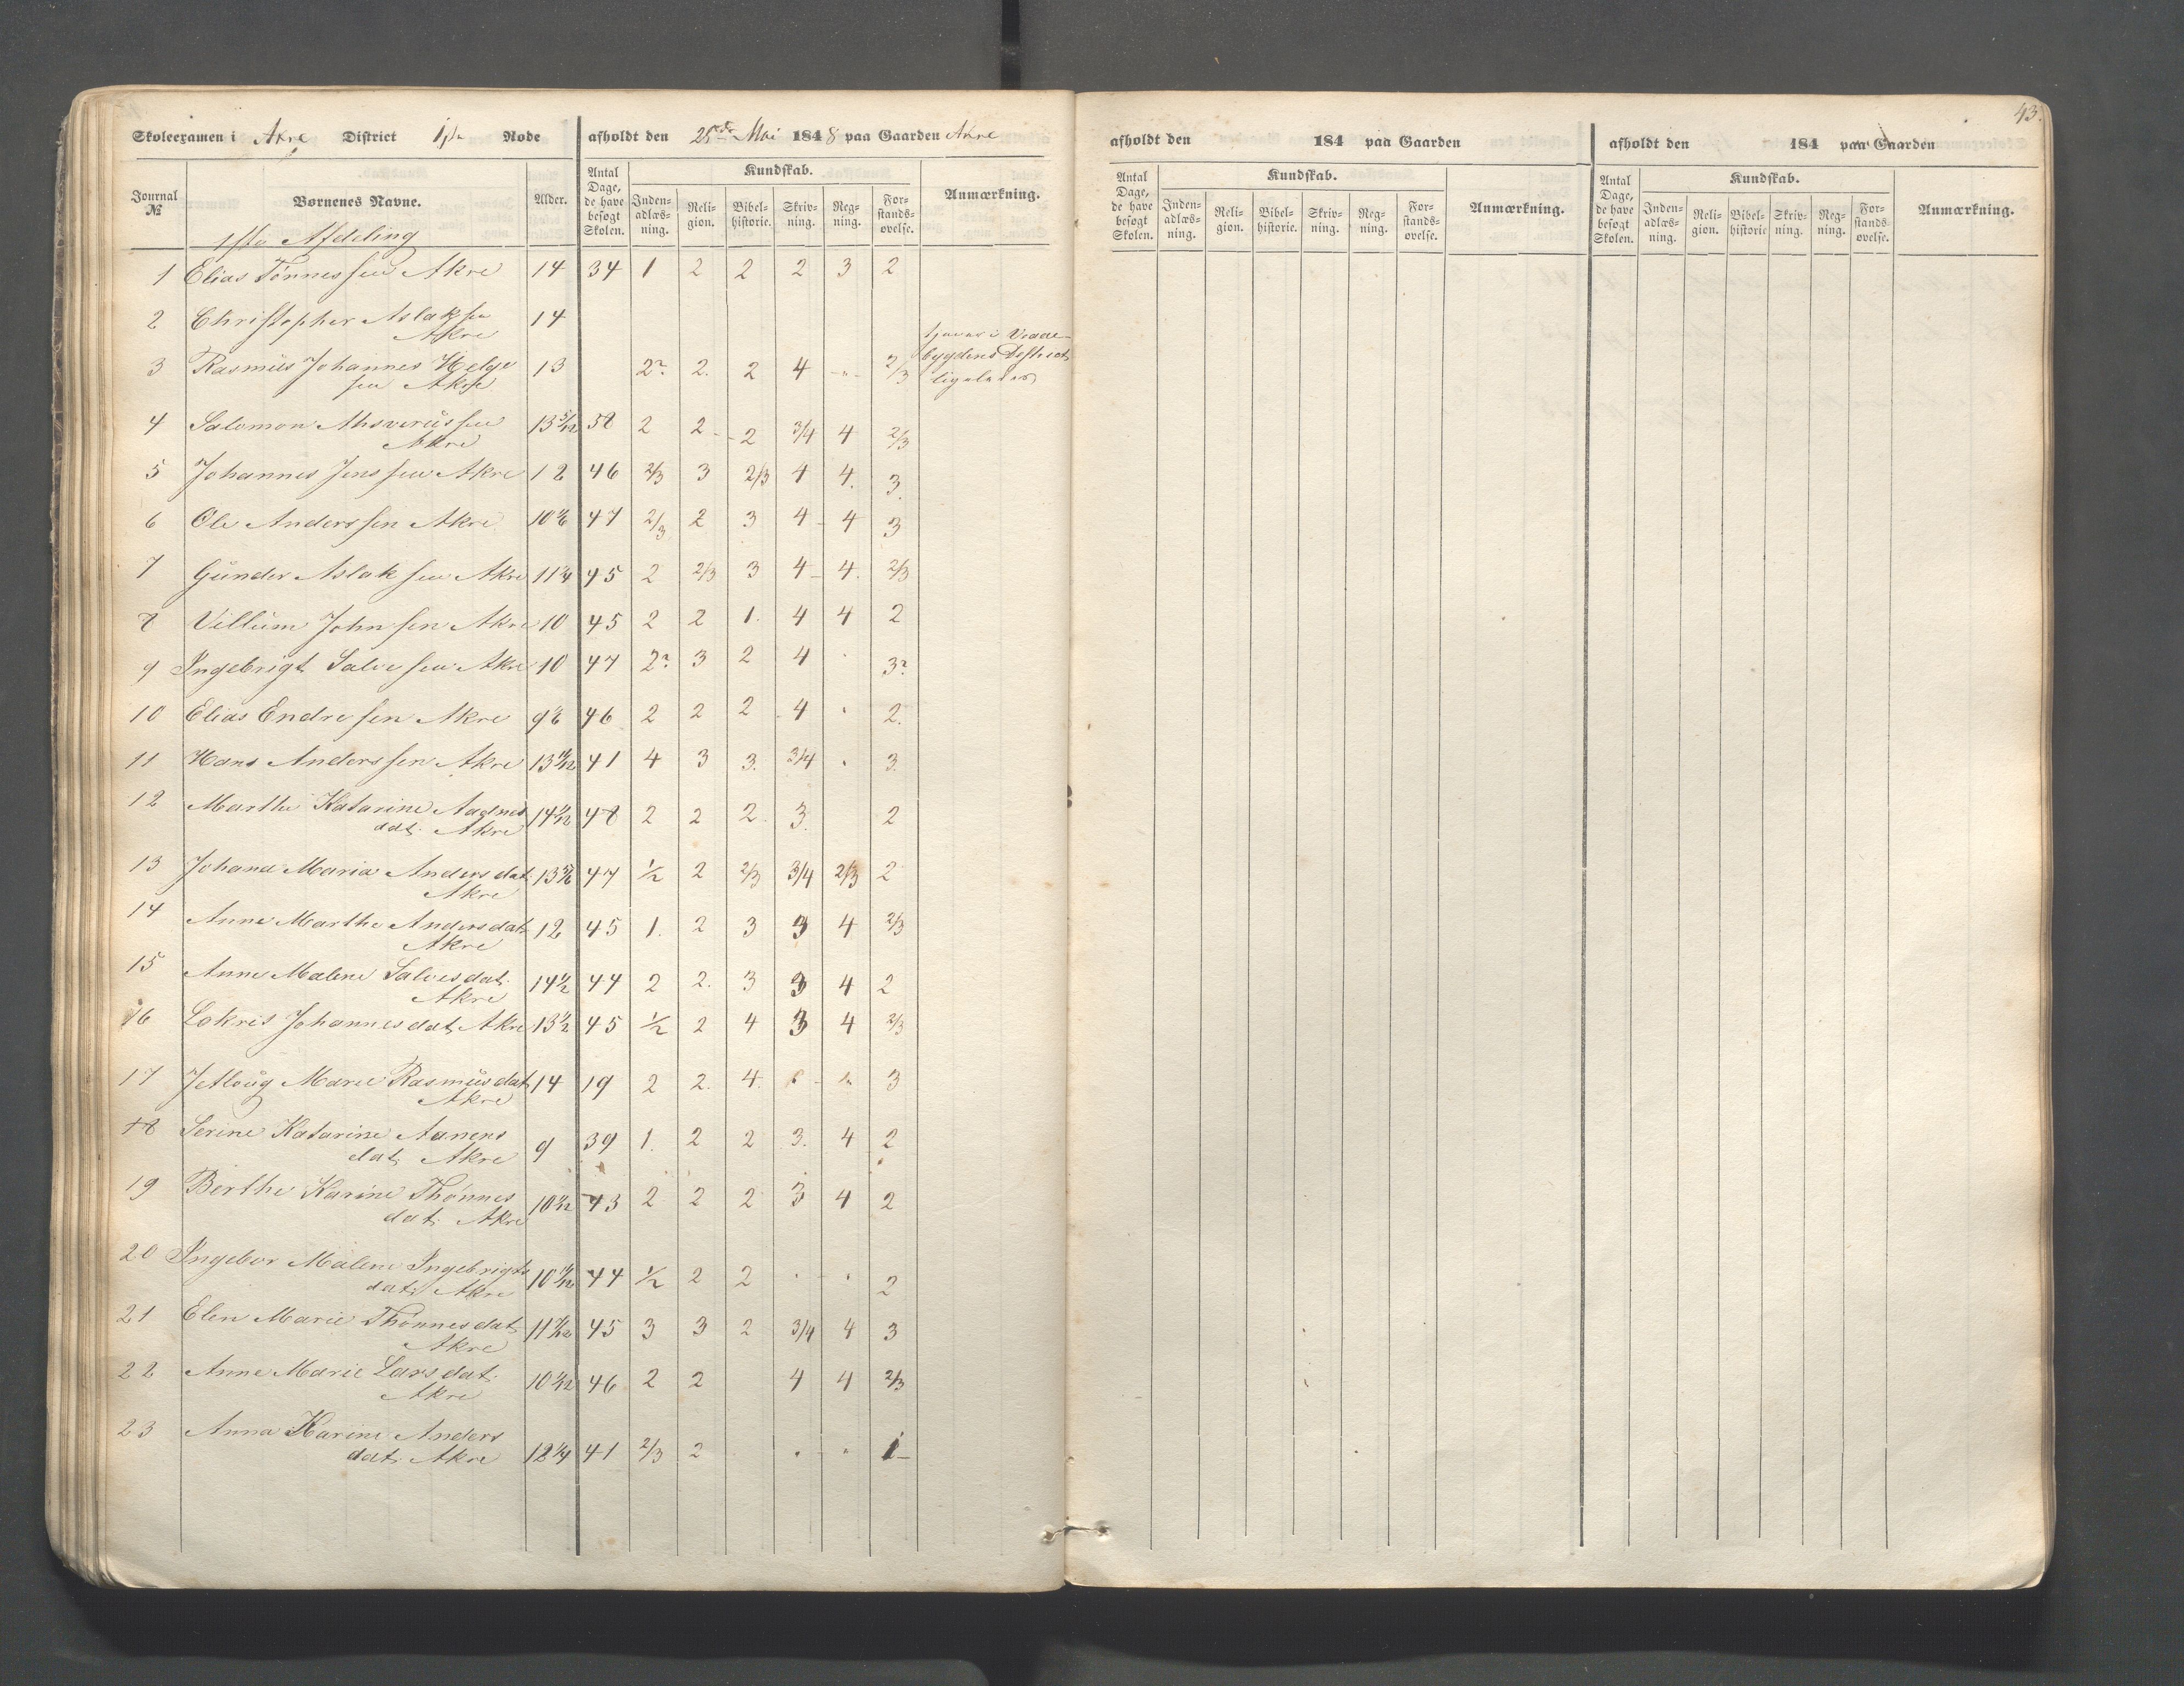 43.
Skoleexamen i Akre District 1ste Rode afholdt den 25de Mai 1848 paa Gaarden Akre
Journal № Børnenes Navne. Alder. Antal Dage, de have besøgt Skolen. Kundskab. Indenadlæsning. Religion. Bibelhistorie. Skrivning. Regning. Forstandsøvelse. Anmærkning.
1ste Afdeling
1 Elias Tönnessen Akre 14 34 1 2 2 2 3 2
2 Christopher Aslaksen Akre 14
3 Rasmüs Johannes Helgesen Akre 13 2? 2. 2 4 - " - 2/3 bygdens ligeledes
4 Salomon Ahsverüssen Akre 13 5/12 58 2 2 2 3/4 4 2/3
5 Johannes Jenssen Akre 12 46 2/3 3 2/3 4 4. 3.
6 Ole Anderssen Akre 10 47 2/3 2 3 4 4 3
7 Günder Aslaksen Akre 11 1/4 45 2 2/3 3 4 4. 2/3
8 Villüm Johnsen Akre 10 45 2 2 1. 4 4 2
9 Ingebrigt Salvesen Akre 10 47 2? 3 2 4 . 3?
10 Elias Endresen Akre 9 1/6 46 2 2 2 4 . 2.
11 Hans Anderssen Akre 13 41 4 3 3. 3/4 . 3.
12 Marthe Katarine Aadnes dat. Akre 14 48 2 2 2. 3. 2
13 Johana Maria Andersdat. Akre 13 5/6 47 1/2 2 2/3 3/4 2/3 2
14 Anne Marthe Andersdat. Akre 12 45 1. 2 3 3 4 2/3
15 Anne Malene Salvesdat. Akre 14 1/2 44 2 2. 3 3 4 2
16 Lokris Johannesdat. Akre 13 1/2 45 1/2 2 4 3 4 2/3
17 Marie Rasmüsdat. Akre 14 19 2 2. 4. 3
18 Serine Katarine Aanens dat. Akre 9 39 1. 2 2 3. 4 2
19 Berthe Karine Thönnes dat. Akre 10 43 2 2 2 3 4 2
20 Ingebor Malene Ingebrigts dat. Akre 10 44 1/2 2 2 . . 2
21 Elen Marie Thönnesdat. Akre 11 45 3 3 2 3/4 4 3
22 Anne Marie Larsdat. Akre 10 46 2 2 4 4 2/3
23 Anna Karine Anders dat. Akre 12 1/4 41 2/3 2 . . 1
afholdt den 184 paa Gaarden
Antal Dage, de have besøgt Skolen. Kundskab. Indenadlæsning. Religion. Bibelhistorie. Skrivning. Regning. Forstandsøvelse. Anmærkning.
afholdt den 184 paa Gaarden
Antal Dage, de have besøgt Skolen. Kundskab. Indenadlæsning. Religion. Bibelhistorie Skrivning. Regning. Forstandsøvelse. Anmærkning.